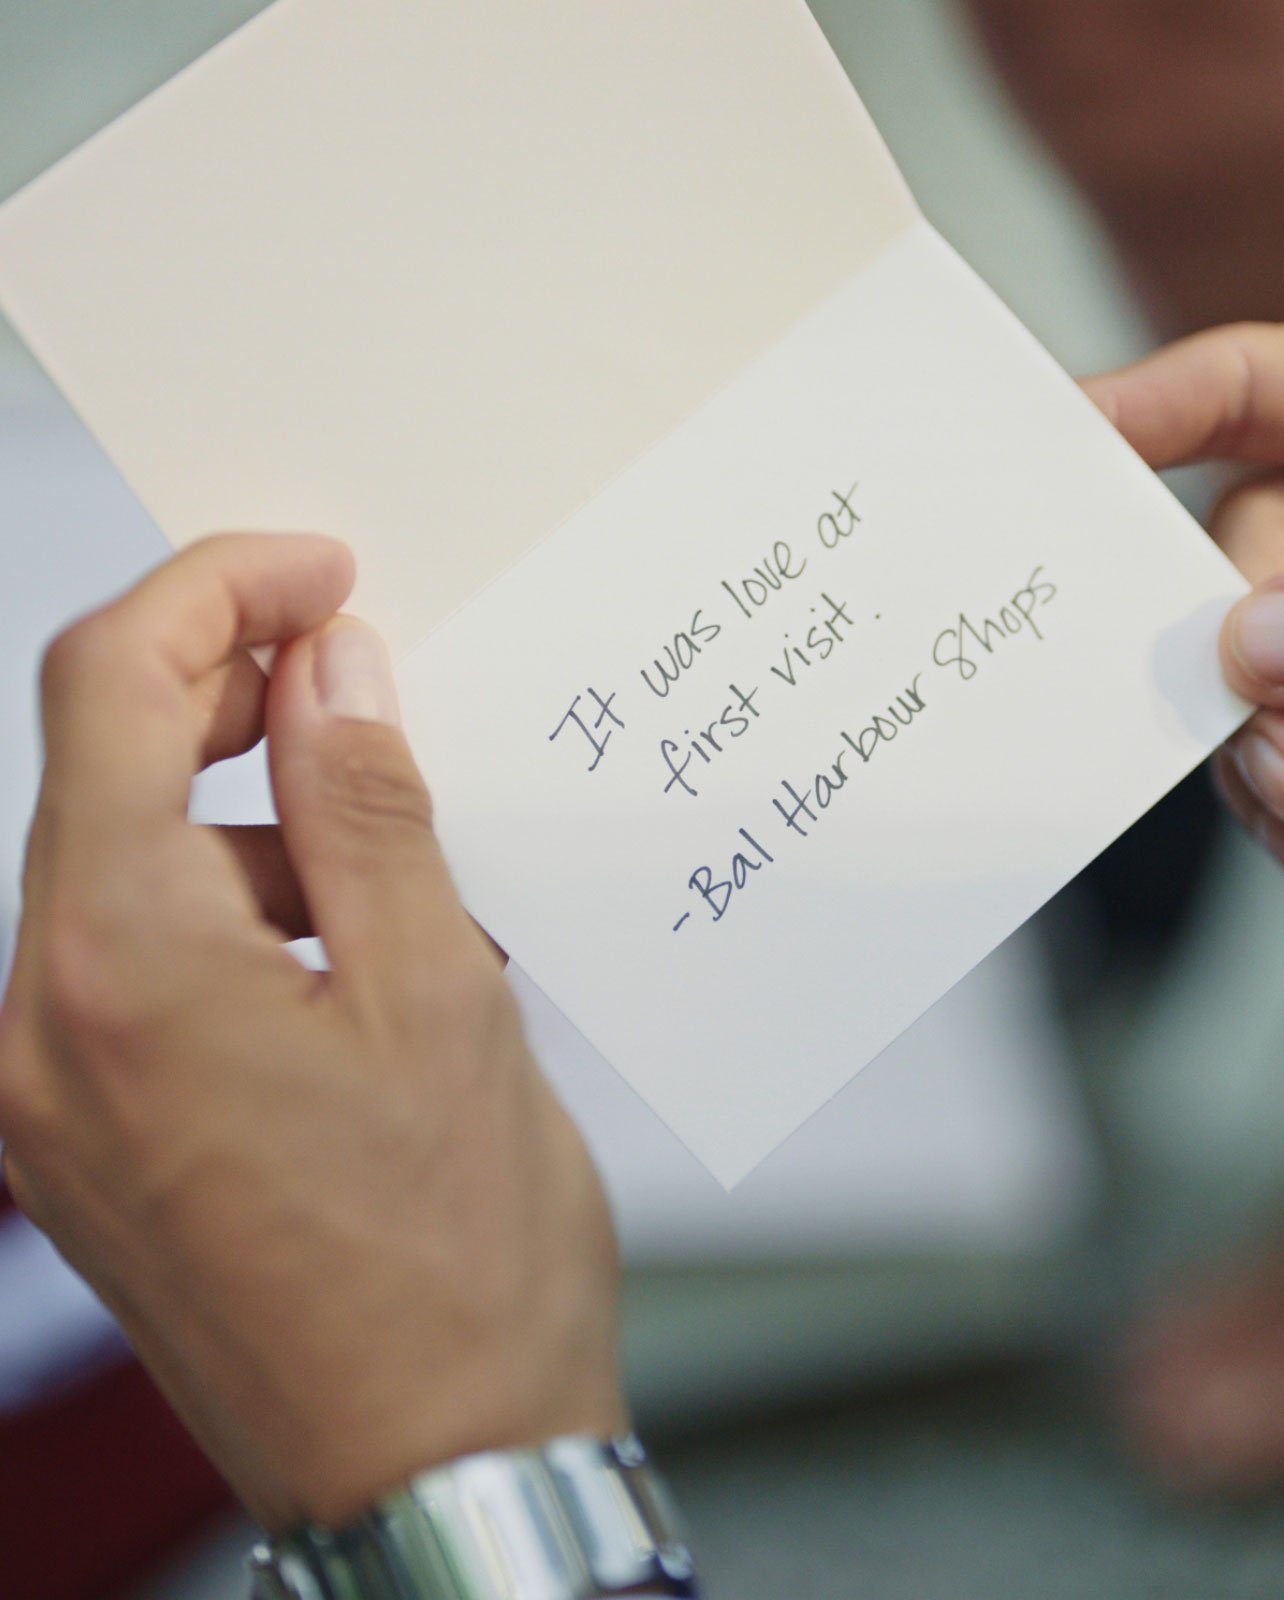 It was love at
first visit.
-Bal Harbour Shops